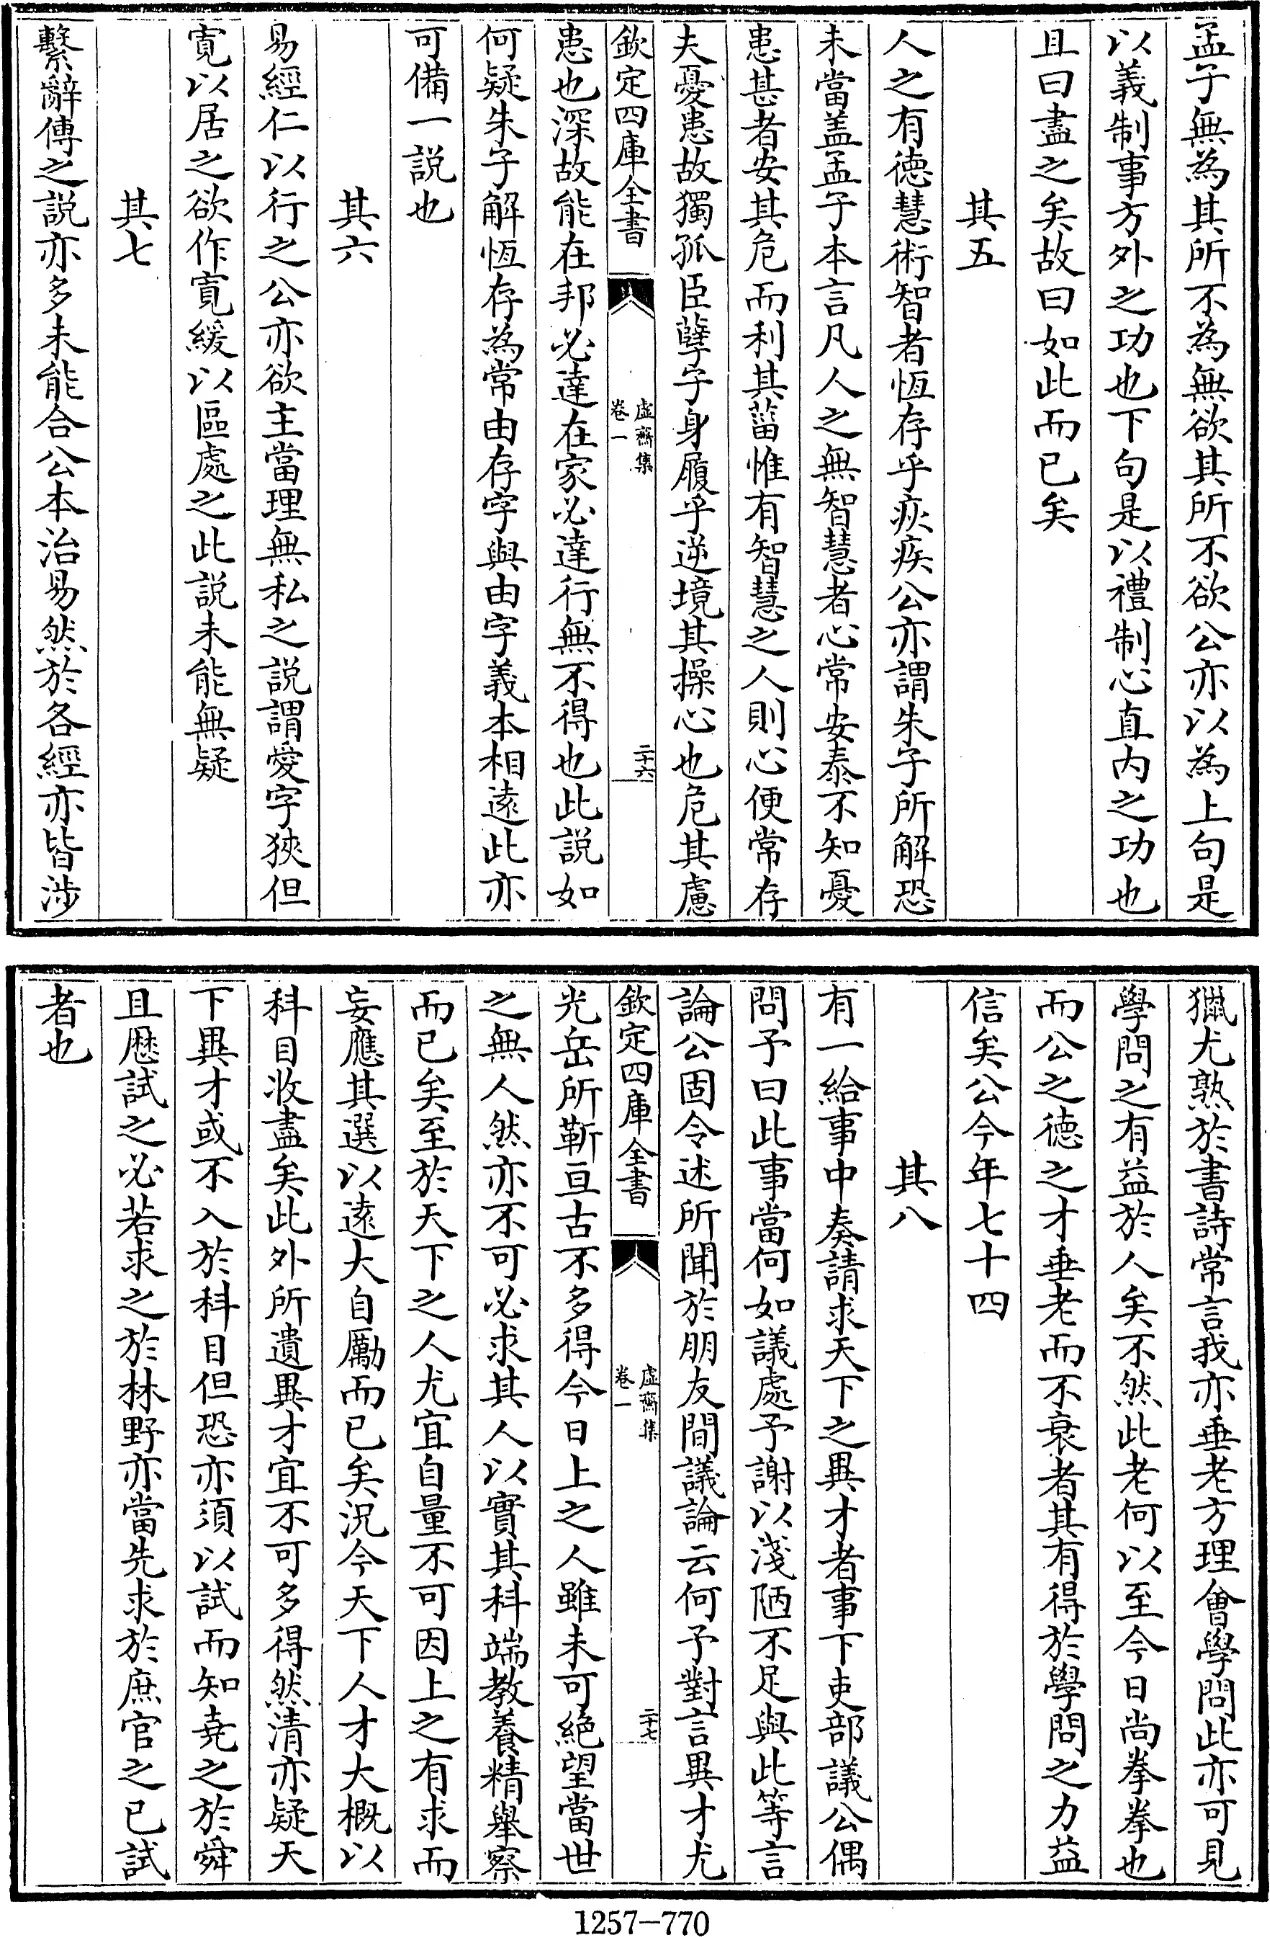 孟子無為其所不為無欲其所不欲公亦以為上句是
以義制事方外之功也下句是以禮制心直内之功也
且曰盡之矣故曰如此而已矣
其五
人之有徳慧術智者恆存乎疢疾公亦謂朱子所解恐
未當盖孟子本言凡人之無智慧者心常安泰不知憂
患甚者安其危而利其菑惟有智慧之人則心便常存
夫憂患故獨孤臣孽子身履乎逆境其操心也危其慮
欽定四庫全書
虚齋集
卷一
二十六
患也深故能在邦必達在家必達行無不得也此説如
何疑朱子解恆存為常由存字與由字義本相逺此亦
可備一説也
其六
易經仁以行之公亦欲主當理無私之説謂愛字狹但
寛以居之欲作寛緩以區處之此説未能無疑
其七
繫辭傳之説亦多未能合公本治易然於各經亦皆涉
獵尤熟於書詩常言我亦垂老方理會學問此亦可見
學問之有益於人矣不然此老何以至今日尚拳拳也
而公之徳之才垂老而不衰者其有得於學問之力益
信矣公今年七十四
其八
有一給事中奏請求天下之異才者事下吏部議公偶
問予曰此事當何如議處予謝以淺陋不足與此等言
論公固令述所聞於朋友間議論云何予對言異才尤
欽定四庫全書
虚齋集
卷一
二十七
光岳所靳亘古不多得今日上之人雖未可絶望當世
之無人然亦不可必求其人以實其科端教養精舉察
而已矣至於天下之人尤宜自量不可因上之有求而
妄應其選以逺大自勵而已矣況今天下人才大概以
科目收盡矣此外所遺異才宜不可多得然清亦疑天
下異才或不入於科目但恐亦須以試而知堯之於舜
且厯試之必若求之於林野亦當先求於庶官之已試
者也
1257—770